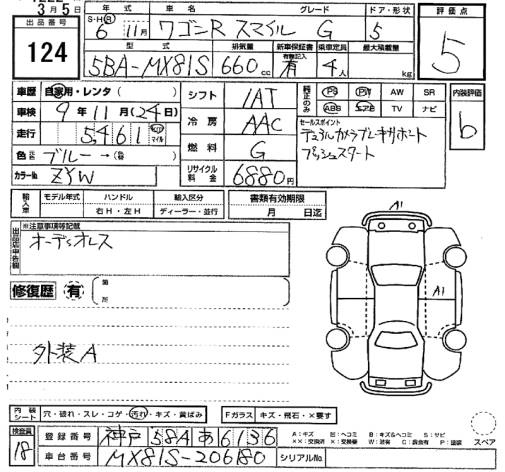 3月5日
出品番号
124
年式
S・H・R
6 11月
車名
ワゴンR スマイル
グレード
G
ドア・形状
5
評価点
5
型式
5BA-MX81S
排気量
660cc
新車保証書
有無記入
有
乗車定員
4人
最大積載量
kg
車歴
自家用・レンタ
車検
9年11月(24日)
走行
5,461
マイル
色
元色
ブルー→(替)
カラーNo
ZYW
シフト
IAT
冷房
AAC
燃料
G
リサイクル料金
6880円
純正のみ
PS PW AW SR
ABS エアB TV ナビ
内装評価
b
セールスポイント
デュアルカメラブレーキサポート
プッシュスタート
輸入車
モデル年式 ハンドル 輸入区分
右H・左H ディーラー・並行
書類有効期限
月 日迄
※注意事項等記載
オーディオレス
修復歴 有
箇所
外装A
A1
A1
内装シート
穴・破れ・スレ・コゲ・汚れ・キズ・黄ばみ
Fガラス キズ・飛石・×要す
検査員
18
登録番号
神戸 58A あ6136
車台番号
MX81S-206180
シリアルNo.
スペア